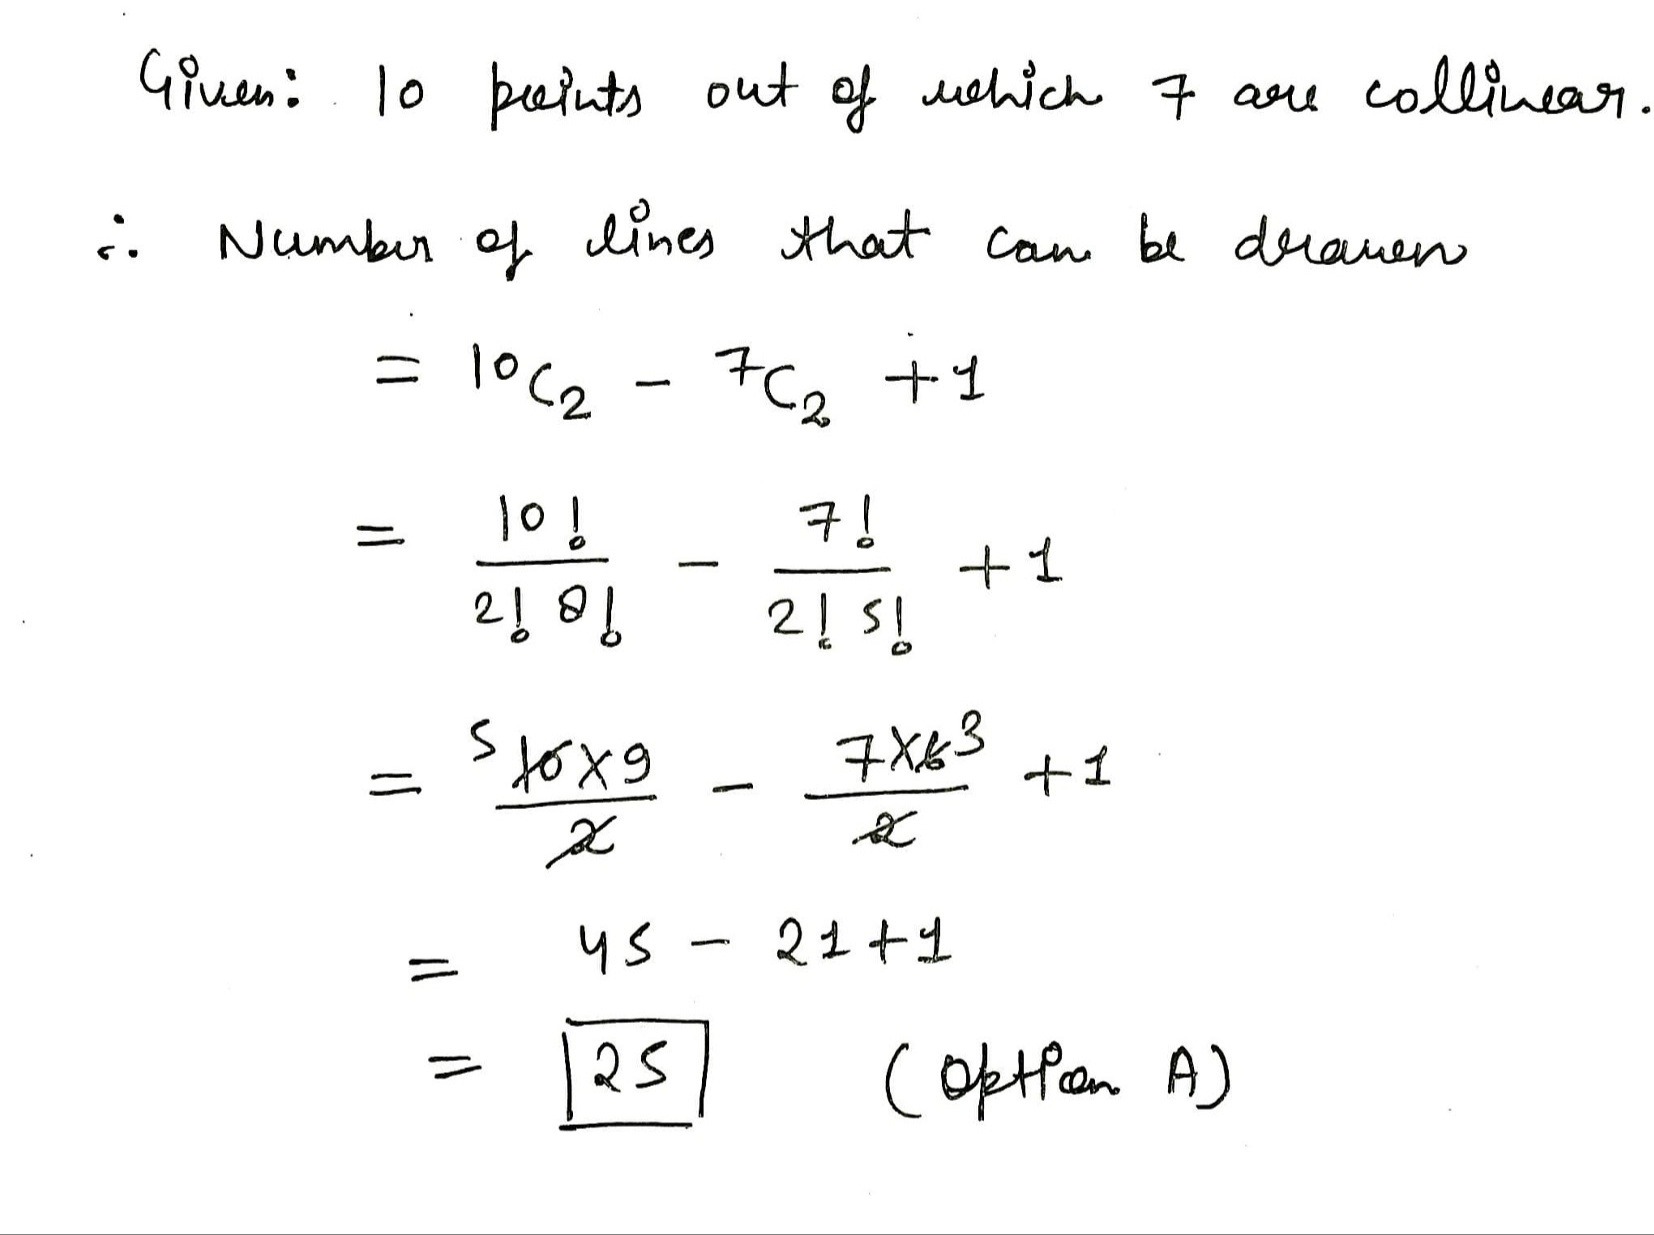 Given: 10 points out of which 7 are collinear.
∴ Number of lines that can be drawn
= ¹⁰C₂ - ⁷C₂ + 1
= 10!/2! 8! - 7!/2! 5! + 1
= 5 10×9/2 - 7×6 3/2 + 1
= 45 - 21 + 1
= 25 (Option A)